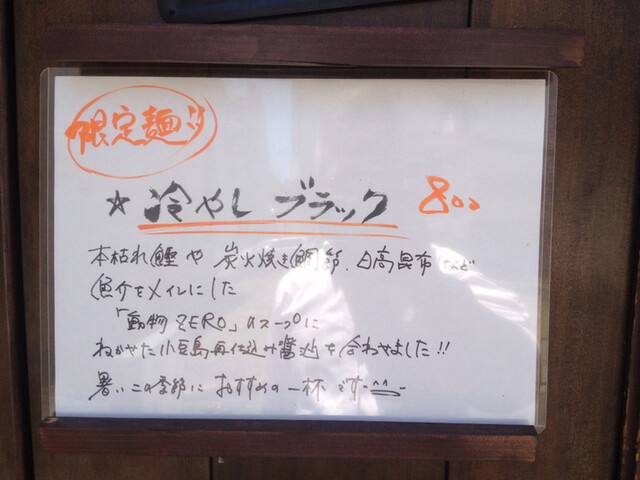 限定麺!!
★冷やしブラック 800
本枯れ鰹や炭火焼き鯛節、日高昆布など
魚介をメインにした
「動物ZERO」のスープに
ねかせた小豆島再仕込み醤油を合わせました!!
暑いこの季節におすすめの一杯です^^